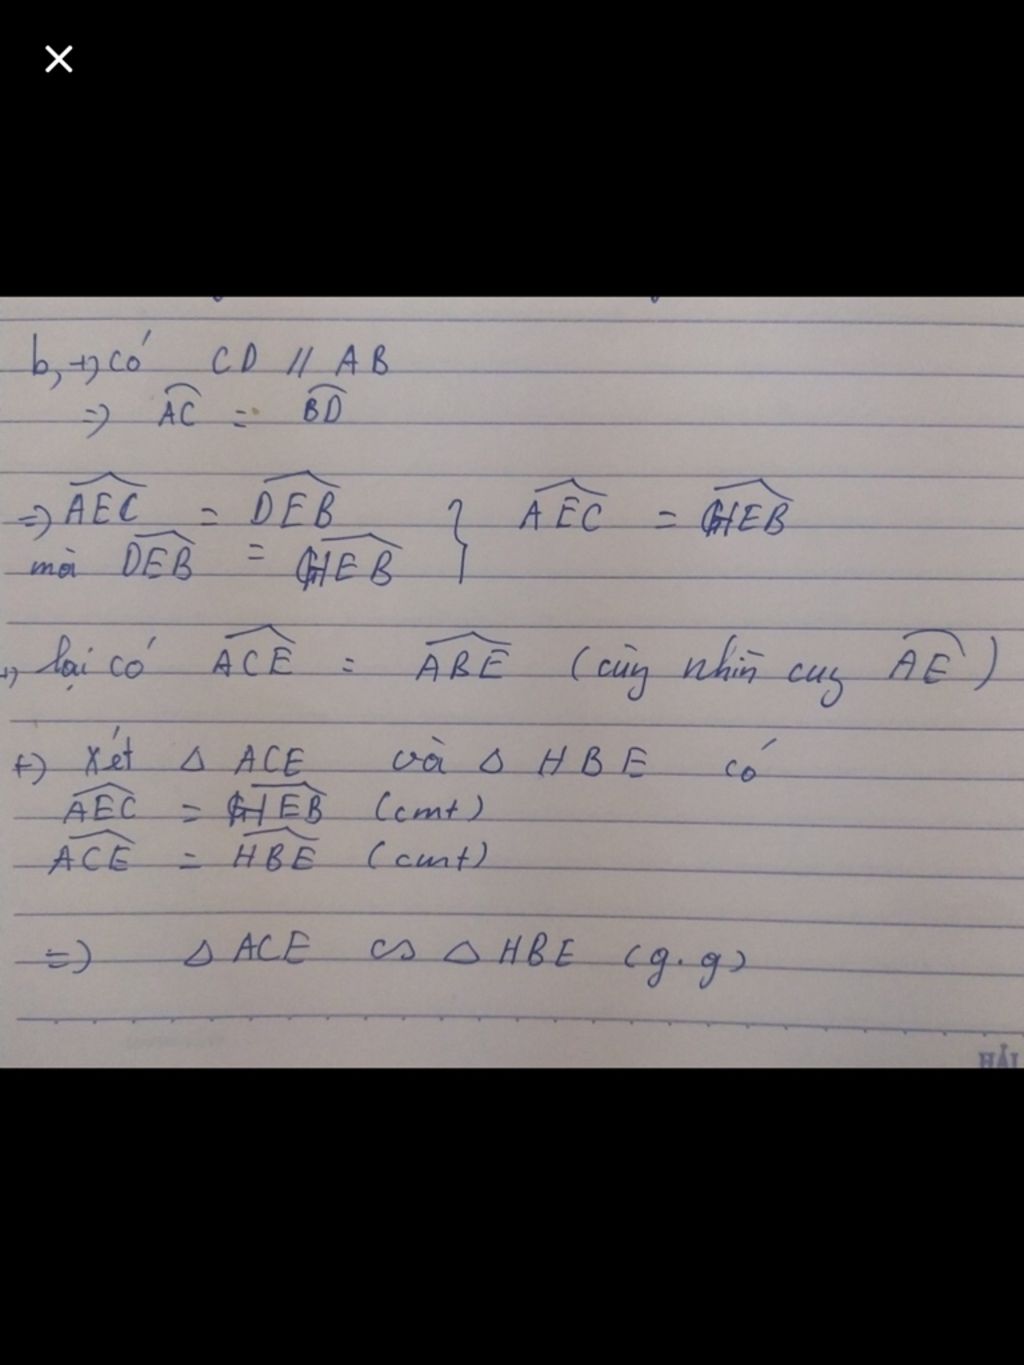 b, +, có CD // AB
=) AC = BD
=) AEC = DEB } AEC = HEB
mà DEB = HEB
+, lại có ACE = ABE (cùng nhìn cung AE)
+) Xét Δ ACE và Δ HBE có
AEC = HEB (cmt)
ACE = HBE (cmt)
=) Δ ACE ∽ Δ HBE (g.g)
HẢI